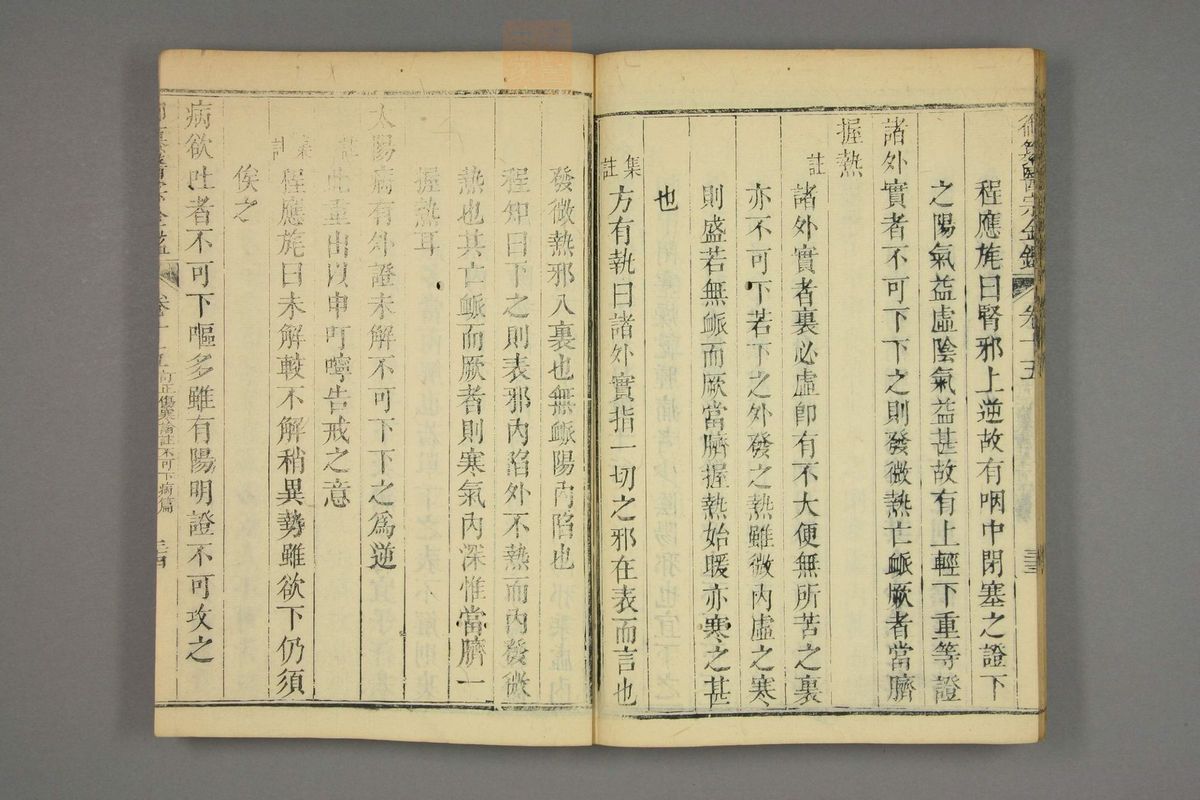 御纂醫宗金鑑 卷十五 三三
程應旄曰腎邪上逆故有咽中閉塞之證下
之陽氣益虛陰氣益甚故有上輕下重等證
諸外實者不可下下之則發微熱亡脈厥者當臍
握熱
註
諸外實者裏必虛卽有不大便無所苦之裏
亦不可下若下之外發之熱雖微內虛之寒
則盛若無脈而厥當臍握熱始暖亦寒之甚
也
集註
方有執曰諸外實指一切之邪在表而言也
發微熱邪入裏也無脈陽內陷也
程知曰下之則表邪內陷外不熱而內發微
熱也其亡脈而厥者則寒氣內深惟當臍一
握熱耳
太陽病有外證未解不可下下之為逆
註
此重出以申叮嚀告戒之意
集註
程應旄曰未解較不解稍異勢雖欲下仍須
俟之
病欲吐者不可下嘔多雖有陽明證不可攻之
卷十五 訂正傷寒論註不可下病篇